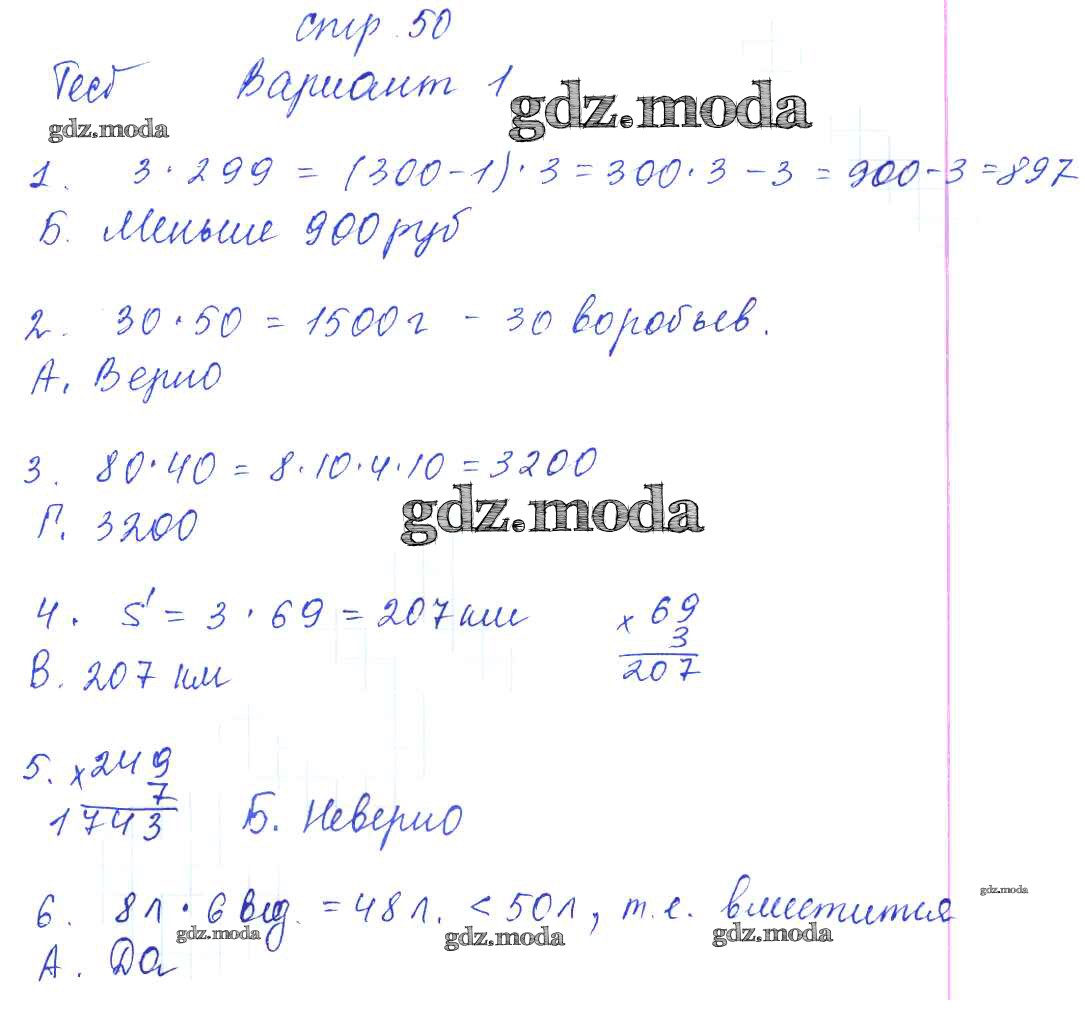 стр. 50
Тест Вариант 1
gdz.moda
gdz.moda
1. 3·299 = (300-1)·3 = 300·3 - 3 = 900-3 = 897
Б. Меньше 900 руб
2. 30·50 = 1500 г - 30 воробьев.
А. Верно
3. 80·40 = 8·10·4·10 = 3200
gdz.moda
Г. 3200
4. S = 3·69 = 207 км
× 69
3
207
В. 207 км
5. × 249
7
1743
Б. Неверно
6. 8л · 6 вед. = 48 л. < 50л, т.е. вместится
gdz.moda
gdz.moda
gdz.moda
gdz.moda
А. Да